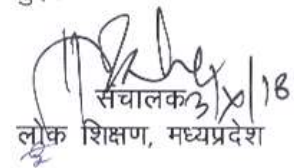 संचालक 3/X/18
लोक शिक्षण, मध्यप्रदेश